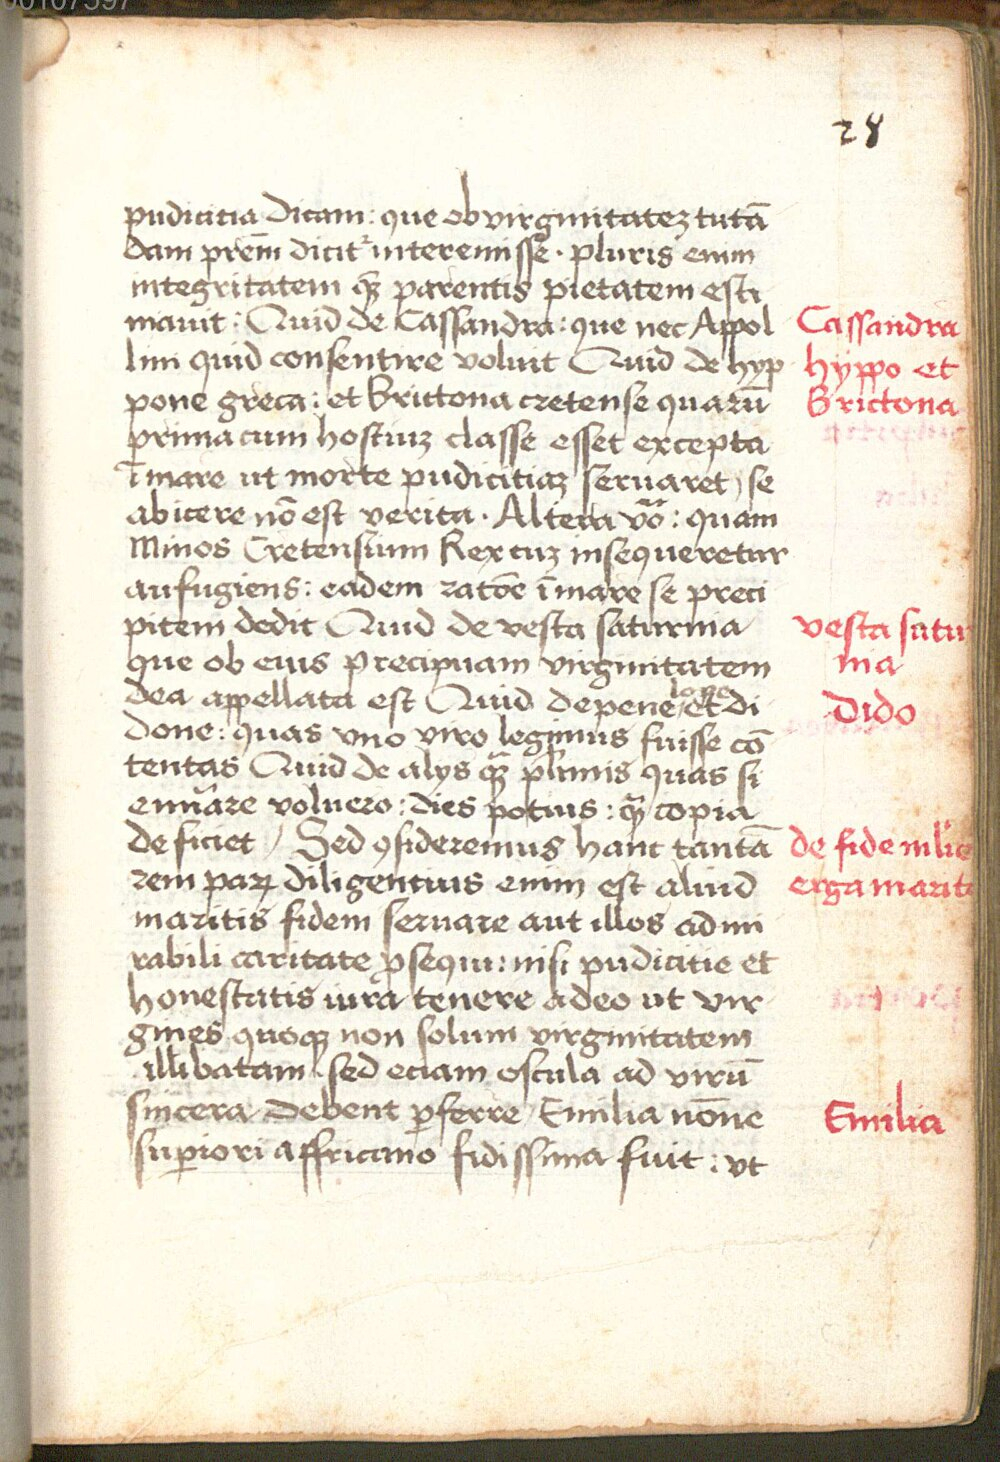 00107597
28
pudicitia dicam: que ob virginitatez tutā
dam prēm dicit᷑ interemisse · pluris enim
integritatem qȝ parentis pietatem esti
mauit: Quid de Cassandra: que nec Appol
lini quid consentire voluit Quid de hyp
pone greca: et Brictona cretense quarū
prima cum hostiuz classe esset excepta
ī mare ut morte pudicitiaz seruaret, se
abicere nō est verita · Altera vō: quam
Minos Cretensium Rex cuz insequeretur
aufugiens: eadem ratōe ī mare se preci
pitem dedit Quid de vesta saturnia
que ob eius precipuam virginitatem
dea appellata est Quid de penelope et di
done: quas vno viro legimus fuisse cō
tentas Quid de alys qȝ plimis quas si
enūare voluero: dies potius: qȝ copia
deficiet / Sed ꝯsideremus hanc tantā
rem parꝫ diligentius enim est aliud
maritis fidem seruare aut illos admi
rabili caritate ꝓsequi: nisi pudicitie et
honestatis iura tenere adeo ut vir
gines quoqȝ non solum virginitatem
illibatam sed eciam oscula ad virū
sincera debent ꝑferre Emilia nōne
superiori affricano fidissima fuit: ut
Cassandra
hyppo et
Brictona
vesta satur
nia
Dido
de fide mulie
erga marito
Emilia